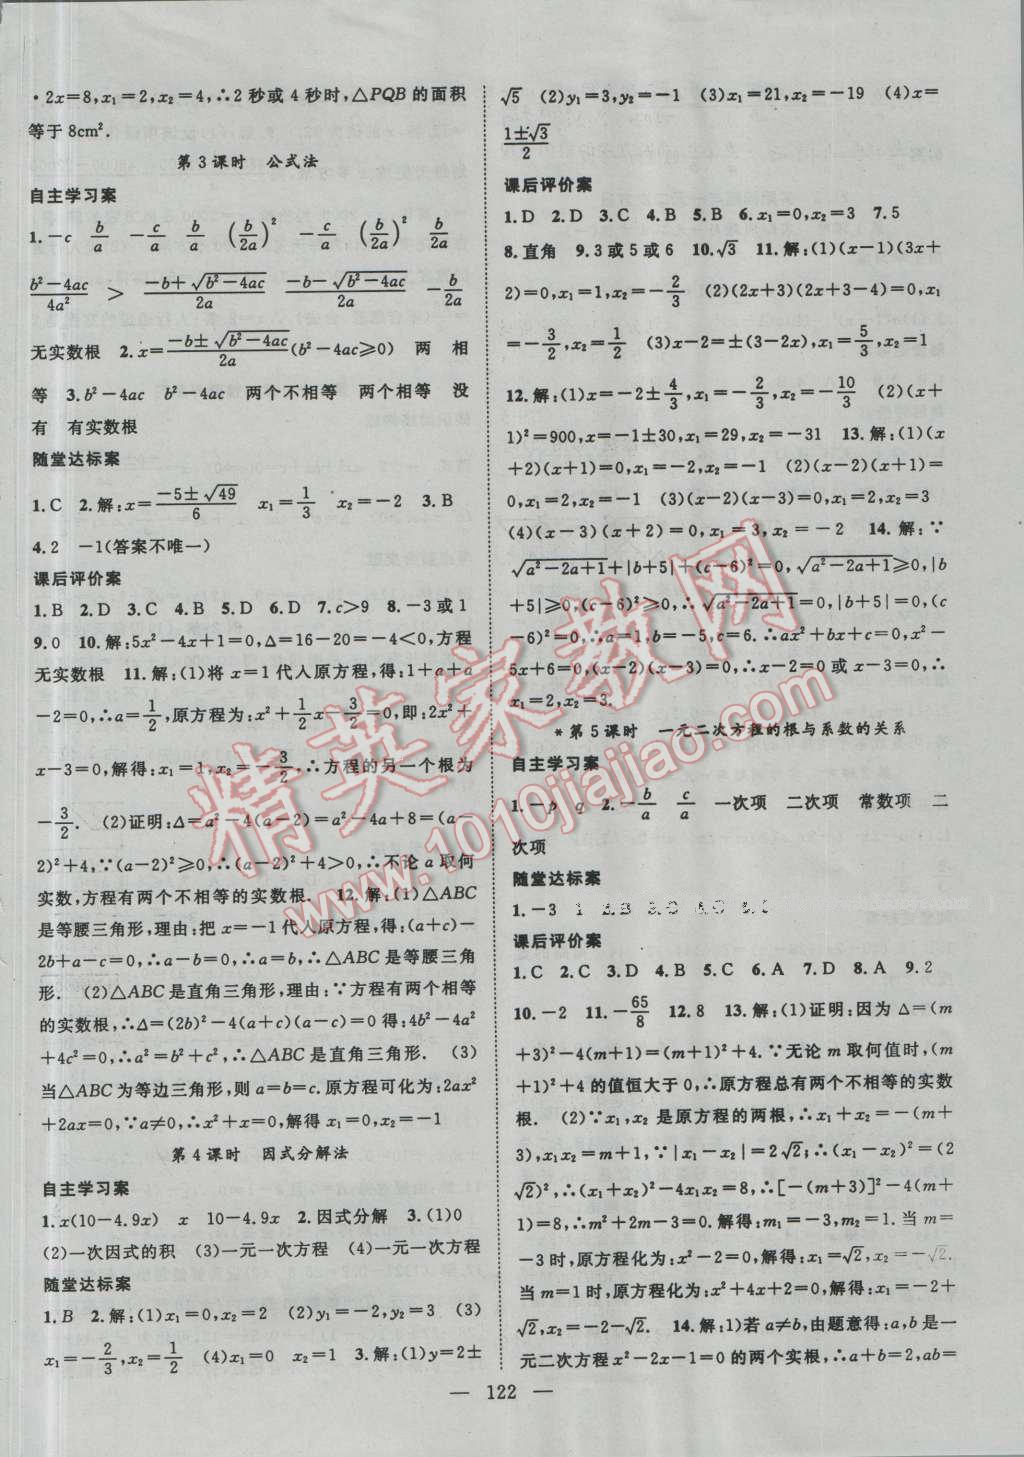 ·2x=8,x₁=2,x₂=4,∴2秒或4秒时,△PQB的面积
等于8cm².
第3课时 公式法
自主学习案
1.-c b/a -c/a b/a (b/2a)² -c/a (b/2a)² b/2a
(b²-4ac)/4a² > (-b+√(b²-4ac))/2a (-b-√(b²-4ac))/2a -b/2a
无实数根 2.x=(-b±√(b²-4ac))/2a(b²-4ac≥0) 两 相
等 3.b²-4ac b²-4ac 两个不相等 两个相等 没
有 有实数根
随堂达标案
1.C 2.解:x=(-5±√49)/6 x₁=1/3 x₂=-2 3.B
4.2 -1(答案不唯一)
课后评价案
1.B 2.D 3.C 4.B 5.D 6.D 7.c>9 8.-3或1
9.0 10.解:5x²-4x+1=0,Δ=16-20=-4<0,方程
无实数根 11.解:(1)将x=1代人原方程,得:1+a+a
-2=0,∴a=1/2,原方程为:x²+1/2x-3/2=0,即:2x²+
x-3=0,解得:x₁=1,x₂=-3/2,∴方程的另一个根为
-3/2. (2)证明:Δ=a²-4(a-2)=a²-4a+8=(a-
2)²+4,∵(a-2)²≥0,∴(a-2)²+4>0,∴不论a取何
实数,方程有两个不相等的实数根. 12.解:(1)△ABC
是等腰三角形,理由:把x=-1代人原方程,得:(a+c)-
2b+a-c=0,∴a-b=0,∴a=b,∴△ABC是等腰三角
形. (2)△ABC是直角三角形,理由:∵方程有两个相等
的实数根,∴Δ=(2b)²-4(a+c)(a-c)=0得:4b²-4a²
+4c²=0,∴a²=b²+c²,∴△ABC是直角三角形. (3)
当△ABC为等边三角形,则a=b=c.原方程可化为:2ax²
+2ax=0,∵a≠0,∴x²+x=0,解得x₁=0,x₂=-1
第4课时 因式分解法
自主学习案
1.x(10-4.9x) x 10-4.9x 2.因式分解 3.(1)0
(2)一次因式的积 (3)一元一次方程 (4)一元一次方程
随堂达标案
1.B 2.解:(1)x₁=0,x₂=2 (2)y₁=-2,y₂=3 (3)
x₁=-2/3,x₂=1/2 (4)x₁=0 x₂=1 3.解:(1)y=2±
√5 (2)y₁=3,y₂=-1 (3)x₁=21,x₂=-19 (4)x=
(1±√3)/2
课后评价案
1.D 2.D 3.C 4.B 5.B 6.x₁=0,x₂=3 7.5
8.直角 9.3或5或6 10.√3 11.解:(1)(x-1)(3x+
2)=0,x₁=1,x₂=-2/3 (2)(2x+3)(2x+3-4)=0,x₁
=-3/2,x₂=1/2 (3)x-2=±(3-2x),x₁=5/3,x₂=1
12.解:(1)x=-2±4/3,x₁=-2/3,x₂=-10/3 (2)(x+
1)²=900,x=-1±30,x₁=29,x₂=-31 13.解:(1)(x
+2)(x+1)=0,x₁=-2,x₂=-1 (2)(x-2)(x+1)=
0,x₁=2,x₂=-1 (3)(x-2)(x-3)=0,x₁=2,x₂=3
(4)(x-3)(x+2)=0,x₁=3,x₂=-2 14.解:∵
√(a²-2a+1)+|b+5|+(c-6)²=0,√(a²-2a+1)≥0,|b
+5|≥0,(c-6)²≥0,∴√(a²-2a+1)=0,|b+5|=0,(c
-6)²=0,∴a=1,b=-5,c=6.∴ax²+bx+c=0,x²-
5x+6=0,(x-2)(x-3)=0,∴x-2=0或x-3=0,∴
x₁=2,x₂=3.
*第5课时 一元二次方程的根与系数的关系
自主学习案
1.-p q 2.-b/a c/a 一次项 二次项 常数项 二
次项
随堂达标案
1.-3
课后评价案
1.C 2.C 3.D 4.B 5.C 6.A 7.D 8.A 9.2
10.-2 11.-65/8 12.8 13.解:(1)证明:因为Δ=(m
+3)²-4(m+1)=(m+1)²+4.∵无论m取何值时,(m
+1)²+4的值恒大于0,∴原方程总有两个不相等的实数
根. (2)∵x₁,x₂是原方程的两根,∴x₁+x₂=-(m+
3),x₁x₂=m+1,∵|x₁-x₂|=2√2,∴(x₁-x₂)²=(2
√2)²,∴(x₁+x₂)²-4x₁x₂=8,∴[-(m+3)]²-4(m+
1)=8,∴m²+2m-3=0.解得:m₁=-3,m₂=1.当m=
-3时,原方程化为:x²-2=0,解得:x₁=√2,x₂=-√2.
当m=1时,原方程化为:x²+4x+2=0,解得:x₁=-2+
√2,x₂=-2-√2. 14.解:1)若a≠b,由题意得:a,b是一
元二次方程x²-2x-1=0的两个实根,∴a+b=2,ab=
— 122 —
精英家教网
www.1010jiajiao.com